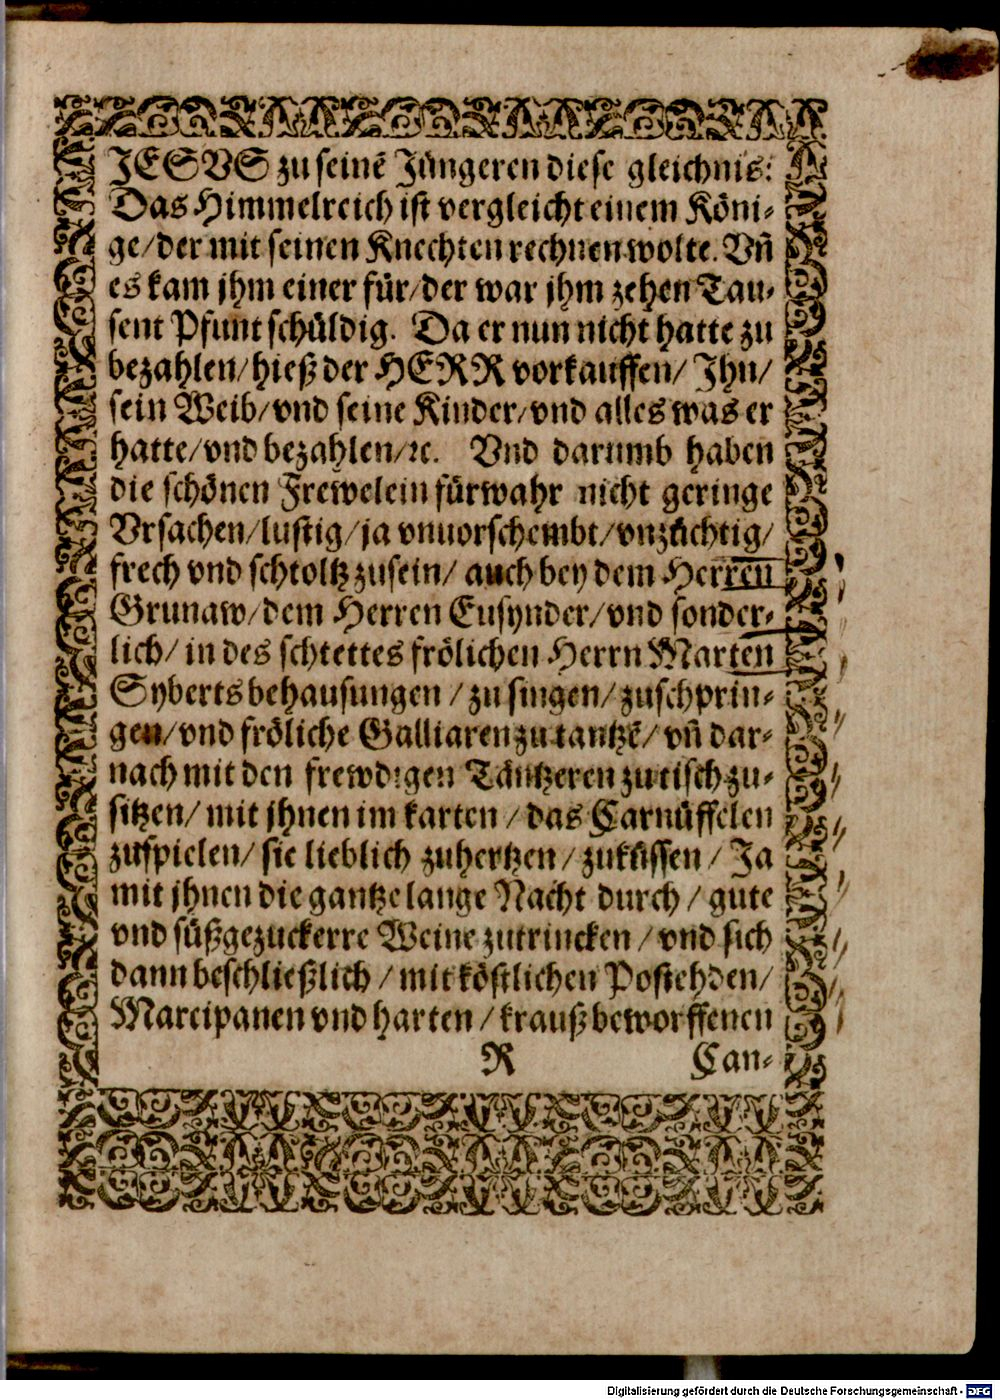 JESVS zu seinē Jüngeren diese gleichnis:
Das Himmelreich ist vergleicht einem Köni-
ge/der mit seinen Knechten rechnen wolte. Vñ
es kam jhm einer für/der war jhm zehen Tau-
sent Pfunt schüldig. Da er nun nicht hatte zu
bezahlen/hieß der HERR vorkauffen/ Jhn/
sein Weib/vnd seine Kinder/vnd alles was er
hatte/vnd bezahlen/ꝛc. Vnd darumb haben
die schönen Frewelein fürwahr nicht geringe
Vrsachen/lustig/ja vnuorschembt/vnzüchtig/
frech vnd schtoltz zusein/ auch bey dem Herren
Grunaw/dem Herren Eusynder/vnd sonder-
lich/ in des schtettes frölichen Herrn Marten
Syberts behausungen /zu singen/zuschprin-
gen/vnd fröliche Galliaren zu tantzē/ vñ dar-
nach mit den frewdigen Täntzeren zu tisch zu-
sitzen/ mit jhnen im karten /das Carnüffelen
zuspielen/ sie lieblich zuhertzen/zuküssen/ Ja
mit jhnen die gantze lange Nacht durch/gute
vnd süßgezuckerre Weine zutrincken /vnd sich
dann beschließlich /mit köstlichen Postehden/
Marcipanen vnd harten /krauß beworffenen
R Can-
Digitalisierung gefördert durch die Deutsche Forschungsgemeinschaft - DFG